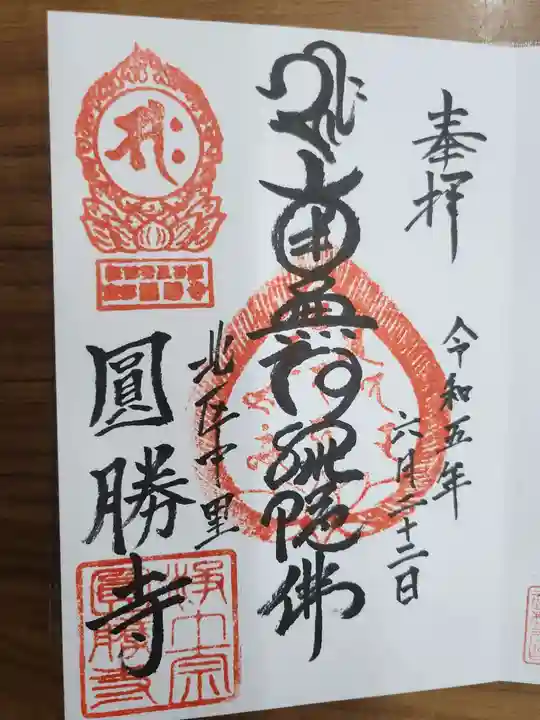 奉拝
令和五年
六月二十二日
南無阿弥陀佛
北区中里
圓勝寺
浄土宗
圓勝寺